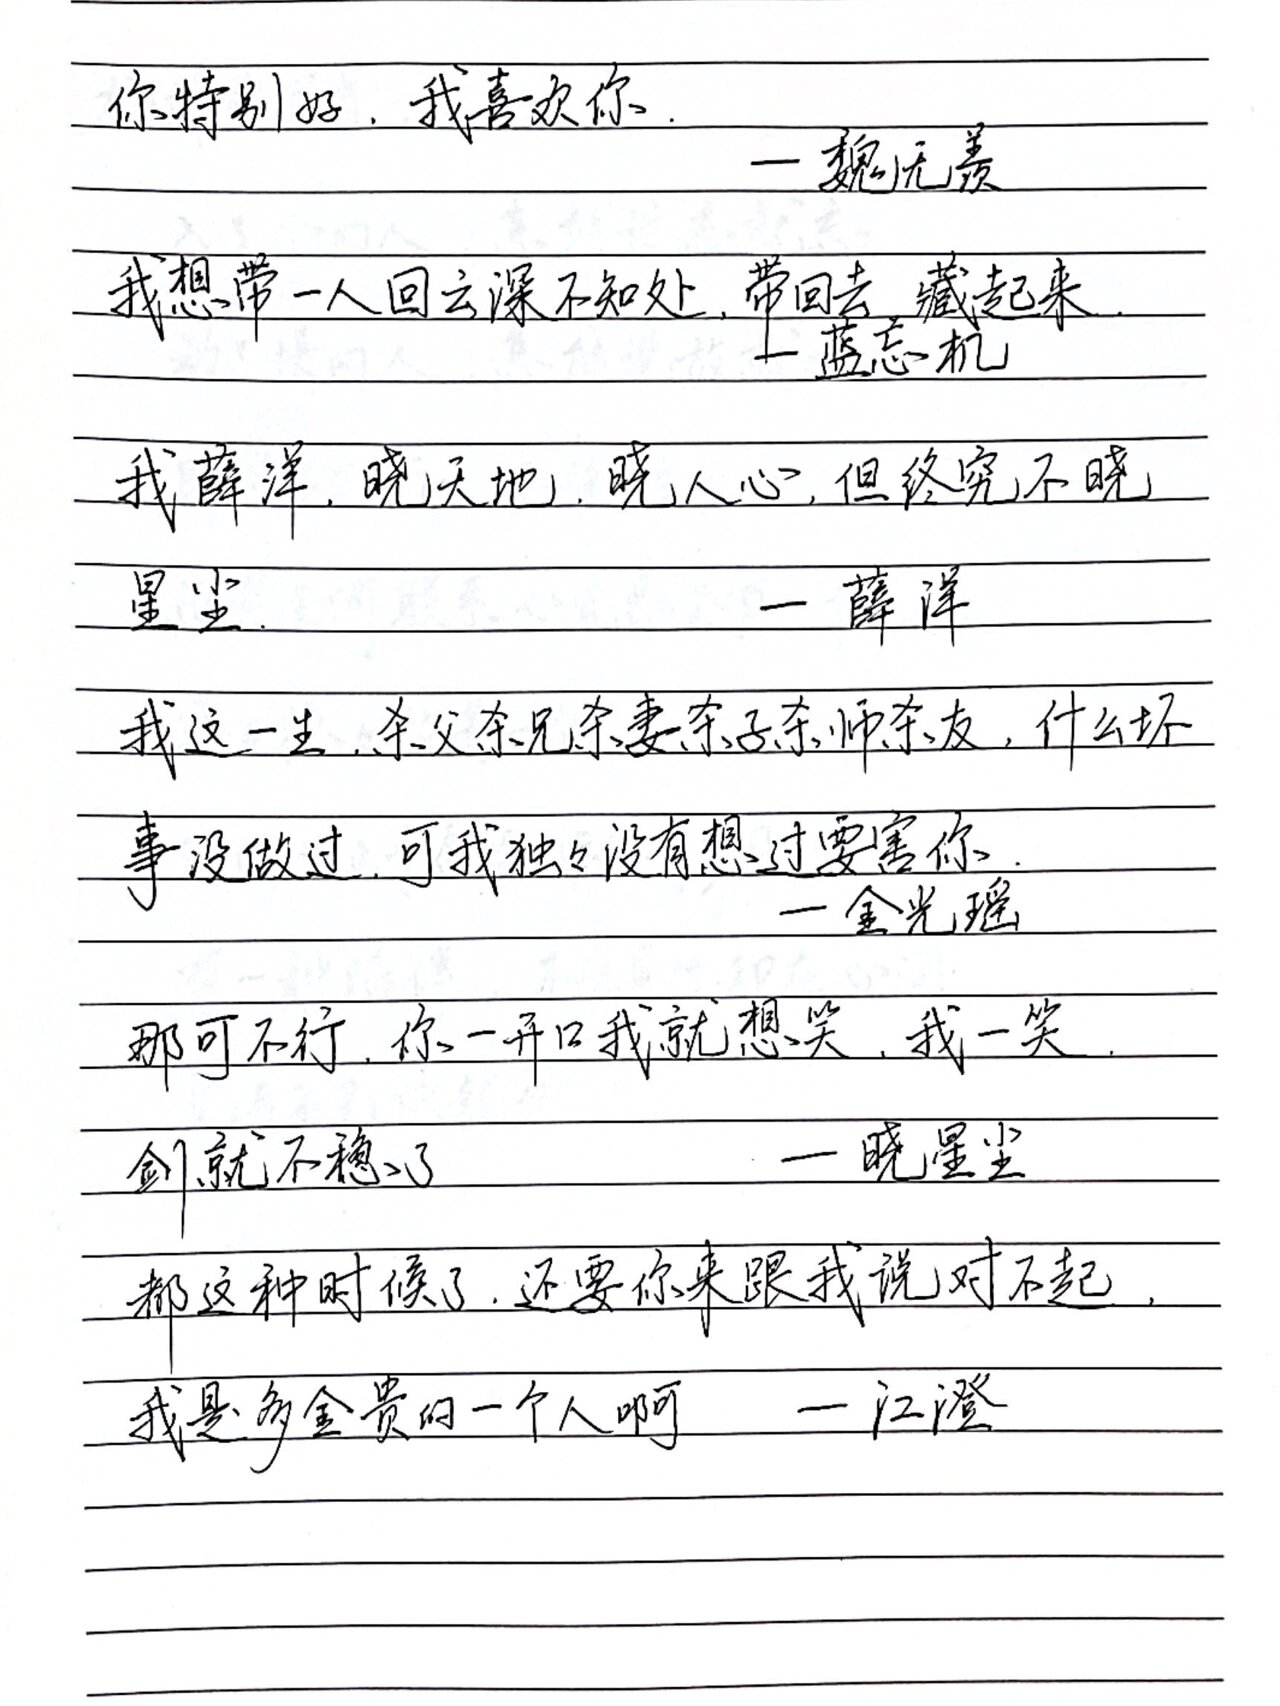 你特别好，我喜欢你.
— 魏无羡
我想带一人回云深不知处，带回去 藏起来.
— 蓝忘机
我薛洋，晓天地，晓人心，但终究不晓
星尘.
— 薛洋
我这一生，杀父杀兄杀妻杀子杀师杀友，什么坏
事没做过，可我独々没有想过要害你.
— 金光瑶
那可不行，你一开口我就想笑，我一笑，
剑就不稳了
— 晓星尘
都这种时候了，还要你来跟我说对不起，
我是多金贵的一个人啊
— 江澄